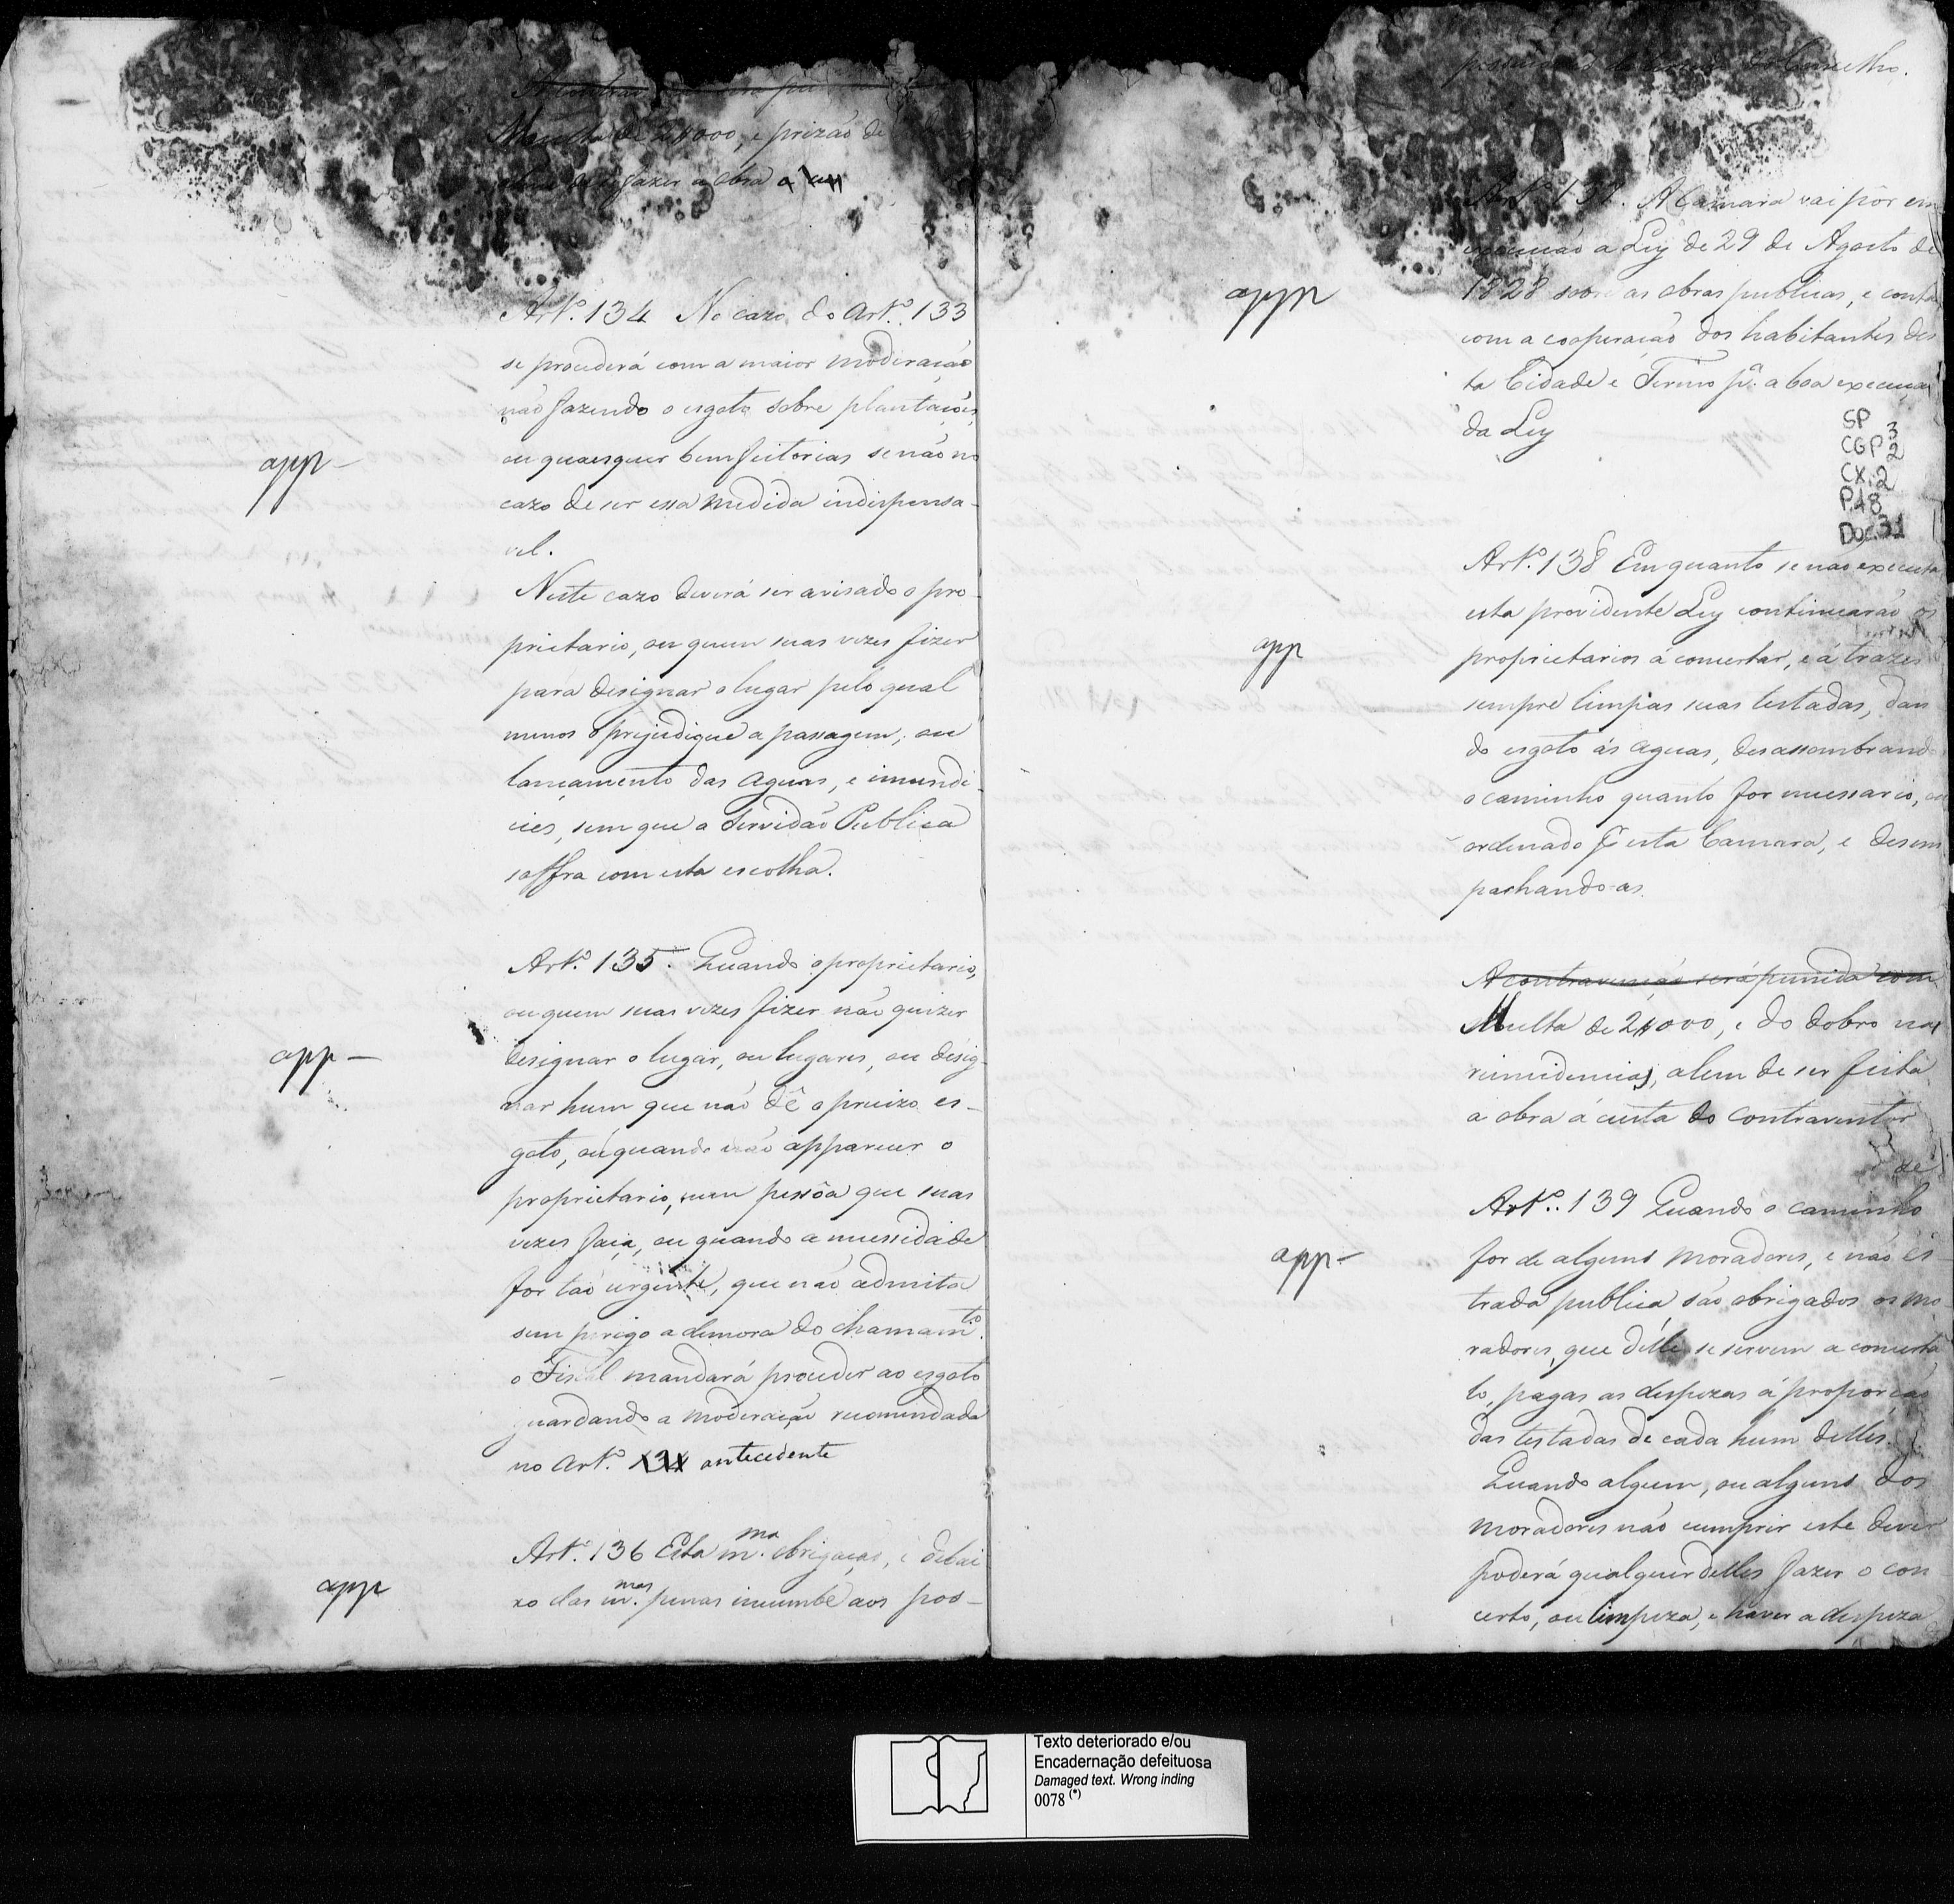 Multa de 2$000, e prizão de
fazer a obra
Art.º 134 No cazo do Art.º 133
se procederá com a maior moderação
não fazendo o esgoto sobre plantações,
ou quaesquer bemfeitorias se não no
app
cazo de ser essa medida indispensa-
vel.
Neste cazo deverá ser avisado o pro
prietario, ou quem suas vezes fizer
para designar o lugar pelo qual
menos prejudique a passagem, ou
lançamento das aguas, e immundi-
cies, sem que a Servidão Publica
soffra com esta escolha.
Art.º 135. Quando o proprietario,
ou quem suas vezes fizer não quizer
app
designar o lugar, ou lugares, ou desig-
nar hum que não dê o precizo es-
goto, ou quando não apparecer o
proprietario, nem pessôa que suas
vezes faça, ou quando a necessidade
for tão urgente, que não admita
sem perigo a demora do chamamto.
o Fiscal mandará proceder ao esgoto
guardando a moderação recomendada
no Art.º 134 antecedente
Art.º 136 Esta m.ma obrigação, e debai
app
xo das m.mas penas incumbe aos pos-
Conselho.
Art.º 137. A Camara vai pôr em
execução a Ley de 29 de Agosto de
app
1828 sobre as obras publicas, e conta
com a cooperação dos habitantes des
ta Cidade e Termo pa. a boa execução
da Ley
SP 3
CGP 2
CX.2
P.48
Doc.31
Art.º 138 Emquanto se não executa
esta providente Ley continuarão os
app
proprietarios á concertar, e á trazer
sempre limpas suas testadas, dan
do esgoto ás aguas, desassombrando
o caminho quanto for necessario, ou
ordenado pr esta Camara, e desem
pachando-as.
A contravenção será punida com
Multa de 2$000, e do dobro nas
reincidencias, alem de ser feita
a obra á custa do contraventor
de
Art.º 139 Quando o caminho
app
for de alguns moradores, e não es-
trada publica, são obrigados os mo-
radores, que délle se servem a concerta
lo, pagas as despezas á proporção
das testadas de cada hum delles.
Quando algum, ou alguns dos
moradores não cumprir este dever
poderá qualquer delles fazer o con
certo, ou limpeza, e haver a despeza
Texto deteriorado e/ou
Encadernação defeituosa
Damaged text. Wrong inding
0078 (*)